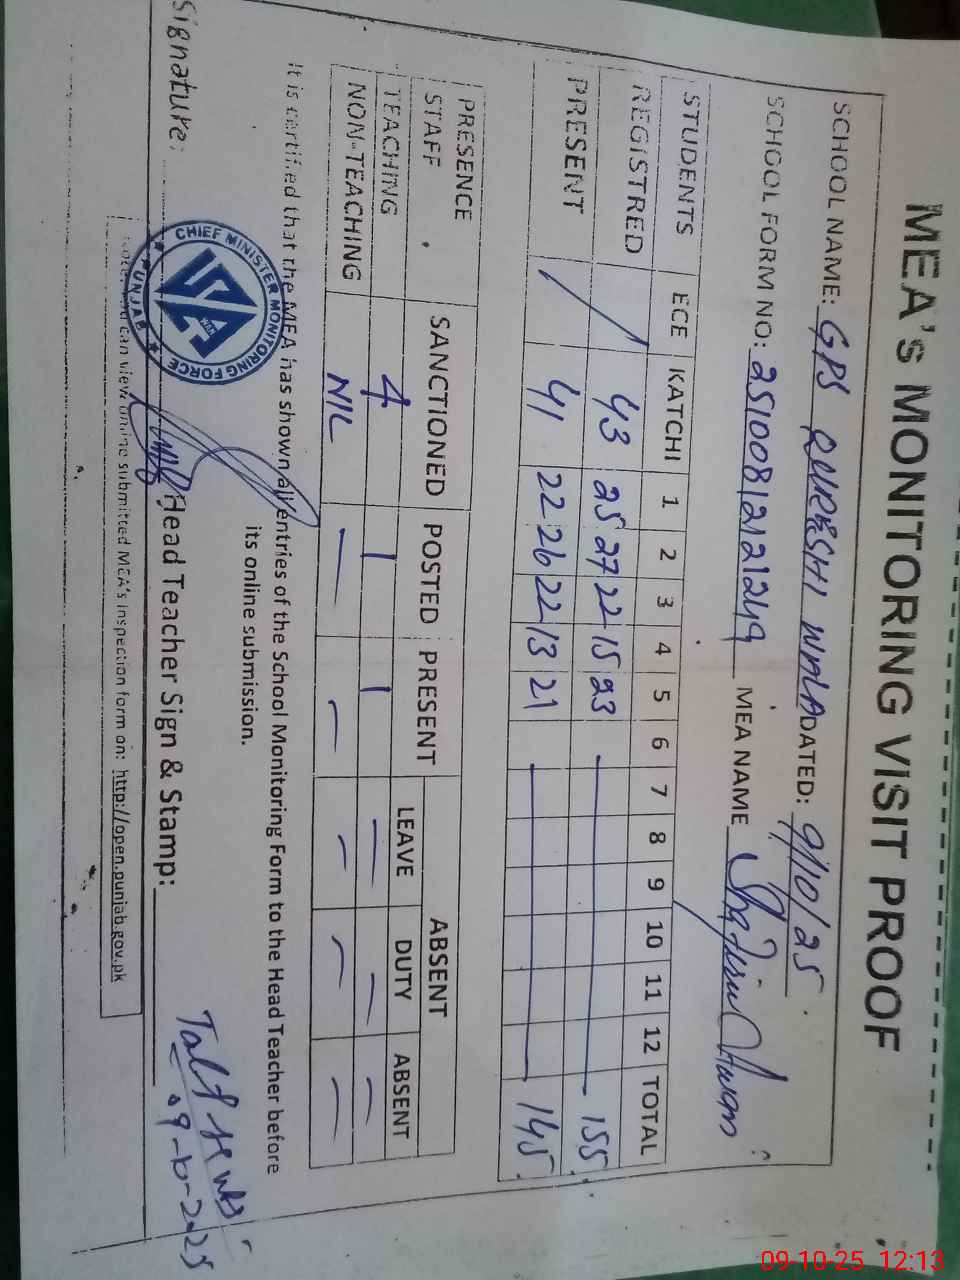 MEA's MONITORING VISIT PROOF
SCHOOL NAME: GPS QURESHI WALA DATED: 9/10/25
SCHOOL FORM NO: 25100812121249 MEA NAME
STUDENTS ECE KATCHI 1 2 3 4 5 6 7 8 9 10 11 12 TOTAL
REGISTRED / 43 25 27 22 15 23 — 155
PRESENT / 41 22 26 22 13 21 — 145
PRESENCE SANCTIONED POSTED PRESENT ABSENT
STAFF LEAVE DUTY ABSENT
TEACHING 4 1 1 — — —
NON-TEACHING NIL — — — — —
It is certified that the MEA has shown all entries of the School Monitoring Form to the Head Teacher before
its online submission.
CHIEF MINISTER MONITORING FORCE
PUNJAB
Signature: Head Teacher Sign & Stamp:
09-10-2025
can view online submitted MEA's inspection form on: http://open.punjab.gov.pk
09-10-25 12:13